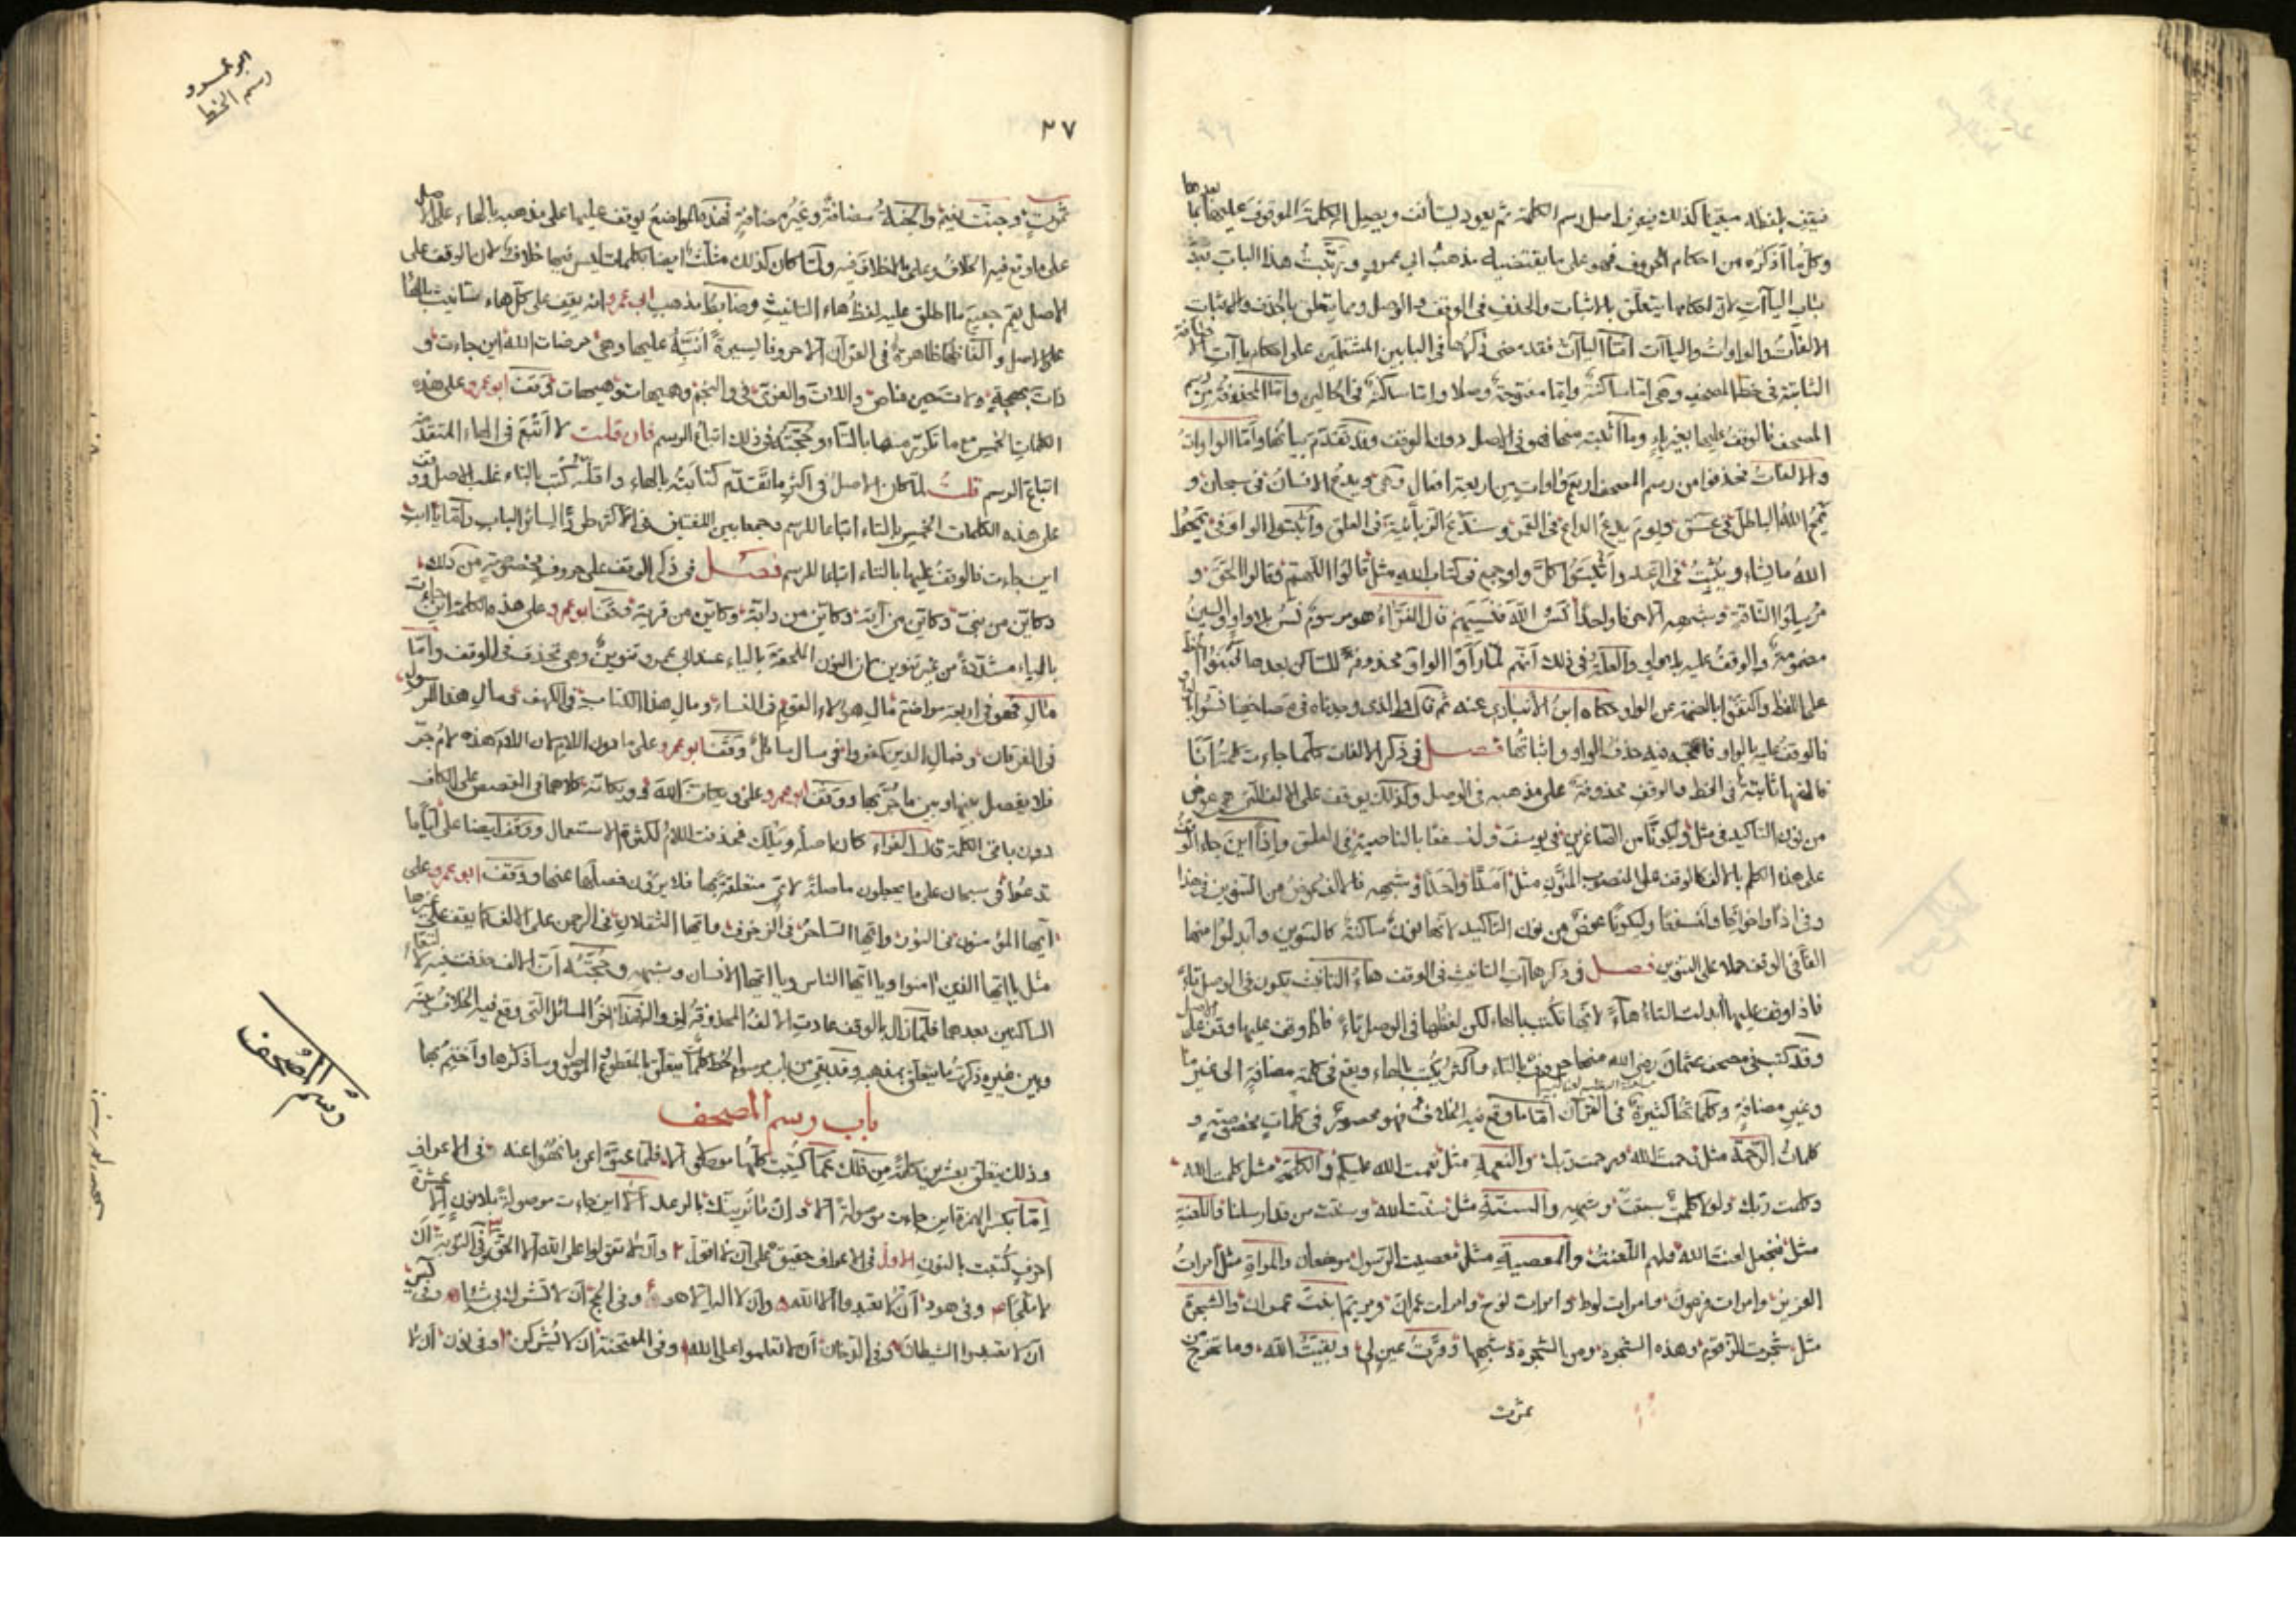 فيقف بلفظه مبقيا كذلك فيوفى اصل رسم الكلمة ثم يعود ليستأنف ويصل الكلمة الموقوف عليها بما بعدها
وكل ما اذكره من احكام الحروف فهو على ما يقتضيه مذهب ابي عمرو ورتبت هذا الباب بعد
باب الياآت لان احكامها يتعلق بالاثبات والحذف في الوقف والوصل وما يتعلق بالحذف والاثبات
الالفات والواوات والياآت امّا الياآت فقد مضى ذكرها في البابين المشتملين على احكام ياآت الاضافة
الثابتة في خط المصحف وهى اما ساكنة واما مفتوحة وصلا واما ساكنة في الحالين واما المحذوفة من رسم
المصحف فالوقف عليها بغير ياء وما اثبته منها فهو فى الوصل دون الوقف وقد تقدم بيانها وامّا الواوات
والالفات فحذفوا من رسم المصحف اربع واوات من اربعة افعال وهى ويدع الانسان في سبحان و
يمح الله الباطل في عسق ويوم يدع الداع في القمر وسندع الزبانية في العلق واثبتوا الواو في يمحوا
الله ما يشاء ويثبت في الرعد واثبتوا كل واو جمع في كتاب الله مثل قالوا اللهم فقالوا الحق و
مرسلوا الناقة وشبهه الا حرفا واحدا نسوا الله فنسيهم قال الفراء هو مرسوم نس بلا واو والسين
مضمومة والوقف عليه بلا واو والعلة في ذلك انهم لما رأوا الواو محذوفة للساكن بعدها كتبوا الخط
على اللفظ واكتفوا بالضمة عن الواو حكاه ابن الانباري عنه ثم قال والذى وجدناه في مصاحفنا نسوا بواو
فالوقف عليه بالواو فالحجة فيه حذف الواو واثباتها فصل في ذكر الالفات كلما جاءت كلمة انا
فالفها ثابتة في الخط فالوقف محذوفة على مذهبه في الوصل وكذلك يوقف على الالف التى هي عوض
من نون التاكيد في مثل وليكونا من الصاغرين في يوسف ولنسفعا بالناصية في العلق واذا اين جاء الوقف
على هذه الكلم بالالف كالوقف على المنصوب المنون مثل امدا واحدا وشبهه فالالف عوض من التنوين في هذا
وفى اذا واخواتها ولنسفعا وليكونا عوض من نون التاكيد لانها نون ساكنة كالتنوين وابدلوا منها
الفا في الوقف حملا على التنوين فصل في ذكر هاآت التانيث في الوقف هاء التانيث يكون في الوصل تاء
فاذا وقف عليها ابدلت التاء هاء لانها تكتب بالهاء لكن لفظها في الوصل تاء فاذا وقف عليها وقف على الاصل
وقد كتب في مصحف عثمان رضي الله منها حروف بالتاء واكثر يكتب بالهاء ويقع في كلمة مضافة الى غيرها
وغير مضافة وكلماتها كثيرة في القرآن امّا ما وقع فيه الخلاف فهو محصور في كلمات مخصوصة و
كلمات الرحمة مثل رحمت الله ورحمت ربك والنعمة مثل نعمت الله عليكم والكلمة مثل كلمت الله
وكلمت ربك ولولا كلمت سبقت وشبهه والسنة مثل سنت الله وسنت من قد ارسلنا واللعنة
مثل فنجعل لعنت الله فلهم اللعنة والمعصية مثل معصيت الرسول موضعان والمراة مثل امرات
العزيز وامرات فرعون وامرات لوط وامرات نوح وامرات عمران ومريم ابنت عمران والشجرة
مثل شجرت الزقوم وهذه الشجرة ومن الشجرة وشبهها وقرت عين لي وبقيت الله وما تخرج من
ثمرت
ابو عمرو
رسم الخط
٣٧
ثمرت وجنت نعيم والجنة مضافة وغير مضافة فهذه المواضع يوقف عليها على مذهبه بالهاء على الاصل
على ما وقع فيه الخلاف وعلى ما لا خلاف فيه ولما كان كذلك مثلت ايضا بكلمات ليس فيها خلاف لان الوقف على
الاصل يعم جميع ما اطلق عليه لفظ هاء التانيث وضابط مذهب ابي عمرو انه يقف على كل هاء تانيث بالهاء
على الاصل والفاظها ظاهرة في القرآن الا حروفا يسيرة انبه عليها وهى مرضات الله اين جاءت و
ذات بهجة ولات حين مناص واللات والعزى في والنجم وهيهات وهيهات فوقف ابو عمرو على هذه
الكلمات الخمس مع ما تكرر منها بالتاء وحجته في ذلك اتباع الرسم فان قلت لا اتبع في الهاء المتقدمة
اتباع الرسم قلت لما كان الاصل في اكثر ما تقدم كتابته بالهاء واقله كتب بالتاء غلب الاصل ووقف
على هذه الكلمات الخمس بالتاء اتباعا للرسم وجمعا بين اللغتين في الاكثر طردا لسائر الباب وامّا يا ابت
اين جاءت فالوقف عليها بالتاء اتباعا للرسم فصل في ذكر الوقف على حروف مخصوصة من ذلك
وكاين من نبي وكاين من آية وكاين من دابة وكاين من قرية فوقف ابو عمرو على هذه الكلمة اين جاءت
بالياء مشددة من غير تنوين لان النون الملحقة بالياء عند ابي عمرو تنوين وهي تحذف في الوقف وامّا
مال فهو في اربعة مواضع فمال هؤلاء القوم في النساء ومال هذا الكتاب في الكهف ومال هذا الرسول
في الفرقان وفمال الذين كفروا في سال سائل وقف ابو عمرو على ما دون اللام لان اللام هذه لام جر
فلا يفصل بينها وبين ما جر بها ووقف ابو عمرو على ويكان الله ويكانه كلاهما في القصص على الكاف
دون باقي الكلمة قال الفراء كان اصله ويلك فحذفت اللام لكثرة الاستعمال ووقف ايضا على اياما
تدعوا في سبحان على ما يجعلون ما صلة لاي متعلقة بها فلا يرون فصلها عنها ووقف ابو عمرو على
ايها المؤمنون في النور وايها الساحر في الزخرف وايها الثقلان في الرحمن على الالف كما يقف على غيرها
مثل يا ايها الذين امنوا ويا ايها الناس ويا ايها الانسان وشبهه وحجته ان الالف حذفت فيه لالتقاء
الساكنين بعدها فلما زال بالوقف عادت الالف المحذوفة فهذا اخر المسائل التي وقع فيه الخلاف بينه
وبين غيره ذكرت ما يتعلق بمذهبه وقد بقي من باب مرسوم الخط كلمات يتعلق بالمقطوع والموصول وساذكرها واختم بها
باب رسم المصحف
رسم المصحف
وذلك يتعلق بعشرين كلمة من ذلك عما كتبت كلها موصلى الا فلما عتوا عن ما نهوا عنه في الاعراف
امّا بكسر الهمزة اين جاءت موصولة الا وان ما نرينك بالرعد الا اين جاءت موصولة بلا نون الا عشرة
احرف كتبت بالنون الاول في الاعراف حقيق على ان لا اقول ٢ وان لا تقولوا على الله الا الحق ٣ في التوبة ان
لا ملجأ وفي هود ان لا تعبدوا الا الله وان لا اله الا هو وفى الحج ان لا تشرك بي شيئا وفى يس
ان لا تعبدوا الشيطان وفى الدخان ان لا تعلوا على الله وفى الممتحنة ان لا يشركن وفى نون ان لا